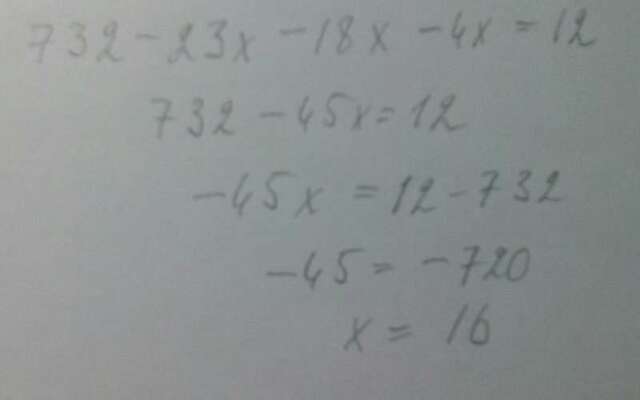 732-23x-18x-4x=12
732-45x=12
-45x=12-732
-45=-720
x=16